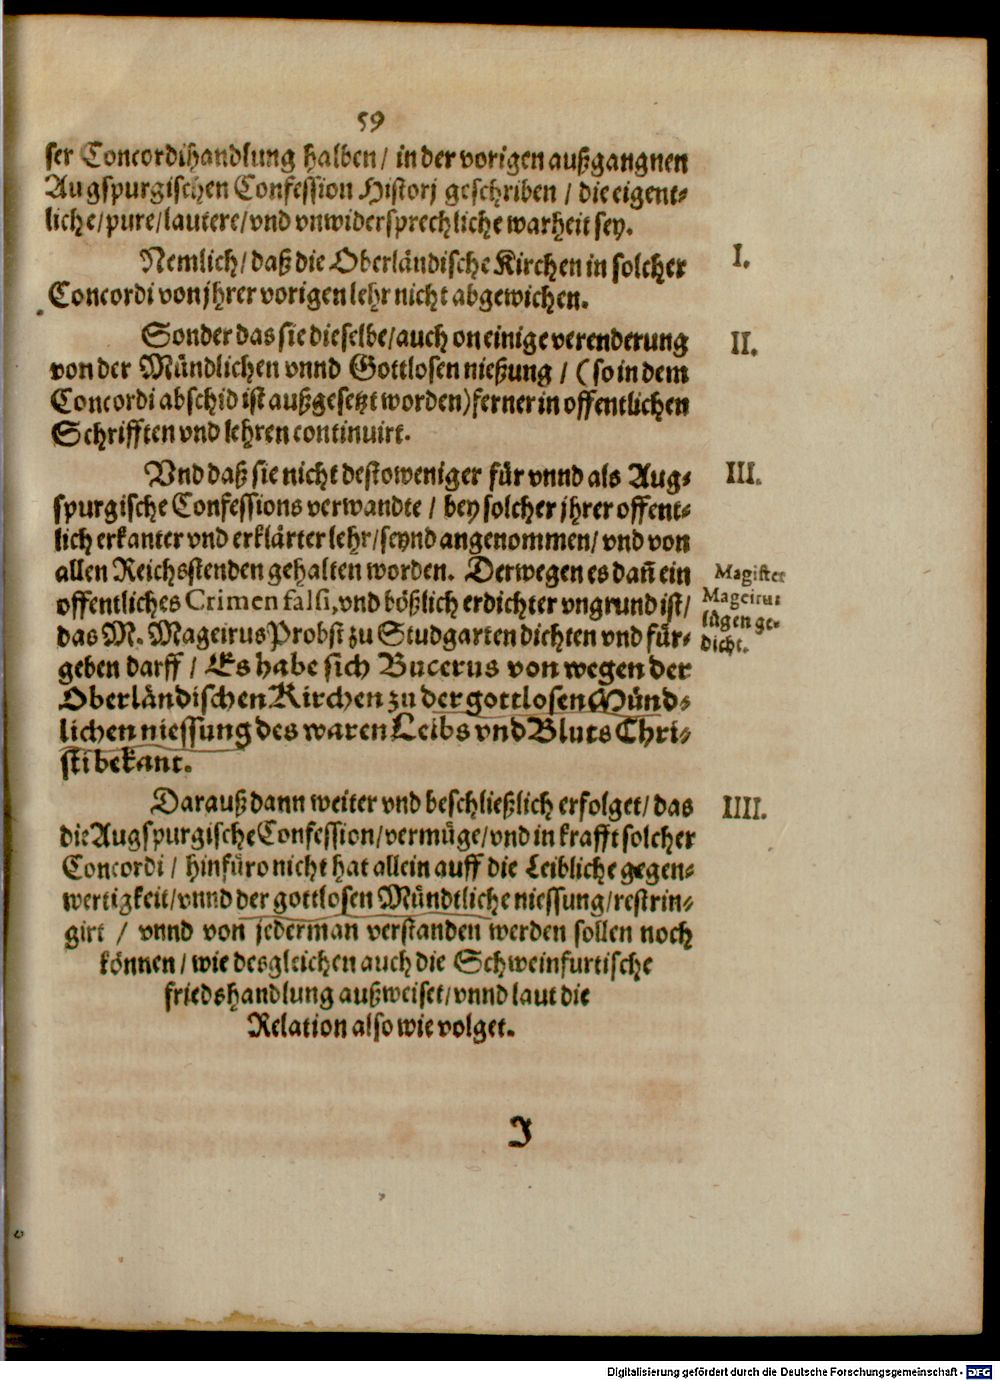 59
ser Concordihandlung halben/ in der vorigen außgangnen
Augspurgischen Confession Historj geschriben / die eigent⸗
liche/ pure/ lautere/ vnd vnwidersprechliche warheit sey.
Nemlich/ daß die Oberländische Kirchen in solcher
I.
Concordi von jhrer vorigen lehr nicht abgewichen.
Sonder das sie dieselbe/ auch on einige verenderung
II.
von der Mündlichen vnnd Gottlosen nießung / (so in dem
Concordi abschid ist außgesetzt worden) ferner in offentlichen
Schrifften vnd lehren continuirt.
Vnd daß sie nicht destoweniger für vnnd als Aug⸗
III.
spurgische Confessions verwandte / bey solcher jhrer offent⸗
lich erkanter vnd erklärter lehr/ seynd angenommen/ vnd von
allen Reichsstenden gehalten worden. Derwegen es dañ ein
offentliches Crimen falsi, vnd bößlich erdichter vngrund ist/
das M. Mageirus Probst zu Studgarten dichten vnd für⸗
geben darff / Es habe sich Bucerus von wegen der
Oberländischen Kirchen zu der gottlosen Münd⸗
lichen niessung des waren Leibs vnd Bluts Chri⸗
sti bekant.
Magister
Mageirus
lügen ge⸗
dicht.
Darauß dann weiter vnd beschließlich erfolget/ das
IIII.
die Augspurgische Confession/ vermüge/ vnd in krafft solcher
Concordi / hinfüro nicht hat allein auff die Leibliche gegen⸗
wertigkeit/ vnnd der gottlosen Mündtliche niessung/ restrin⸗
girt / vnnd von jederman verstanden werden sollen noch
können/ wie desgleichen auch die Schweinfurtische
friedshandlung außweiset/ vnnd laut die
Relation also wie volget.
J
Digitalisierung gefördert durch die Deutsche Forschungsgemeinschaft - DFG